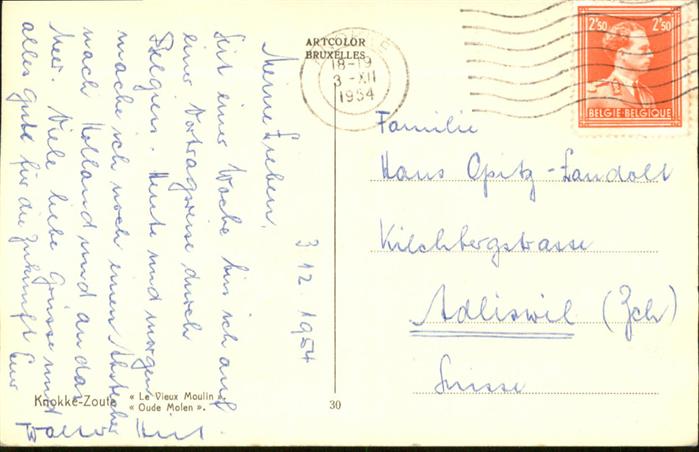 ARTCOLOR
BRUXELLES
18-19
3-XII
1954
2F50 2F50
BELGIE-BELGIQUE
3 12. 1954
Meine Lieben,
Seit einer Woche bin ich auf
einer Vortragsreise durch
Belgien. Heute und morgen
mache ich noch einen Abstecher
nach Holland und an das
Meer. Viele liebe Grüsse und
alles Gute für die Zukunft Euer
Walter
Familie
Hans Opitz-Landolt
Kilchbergstrasse
Adliswil (Zch)
Suisse
Knokke-Zoute « Le Vieux Moulin ».
« Oude Molen ».
30